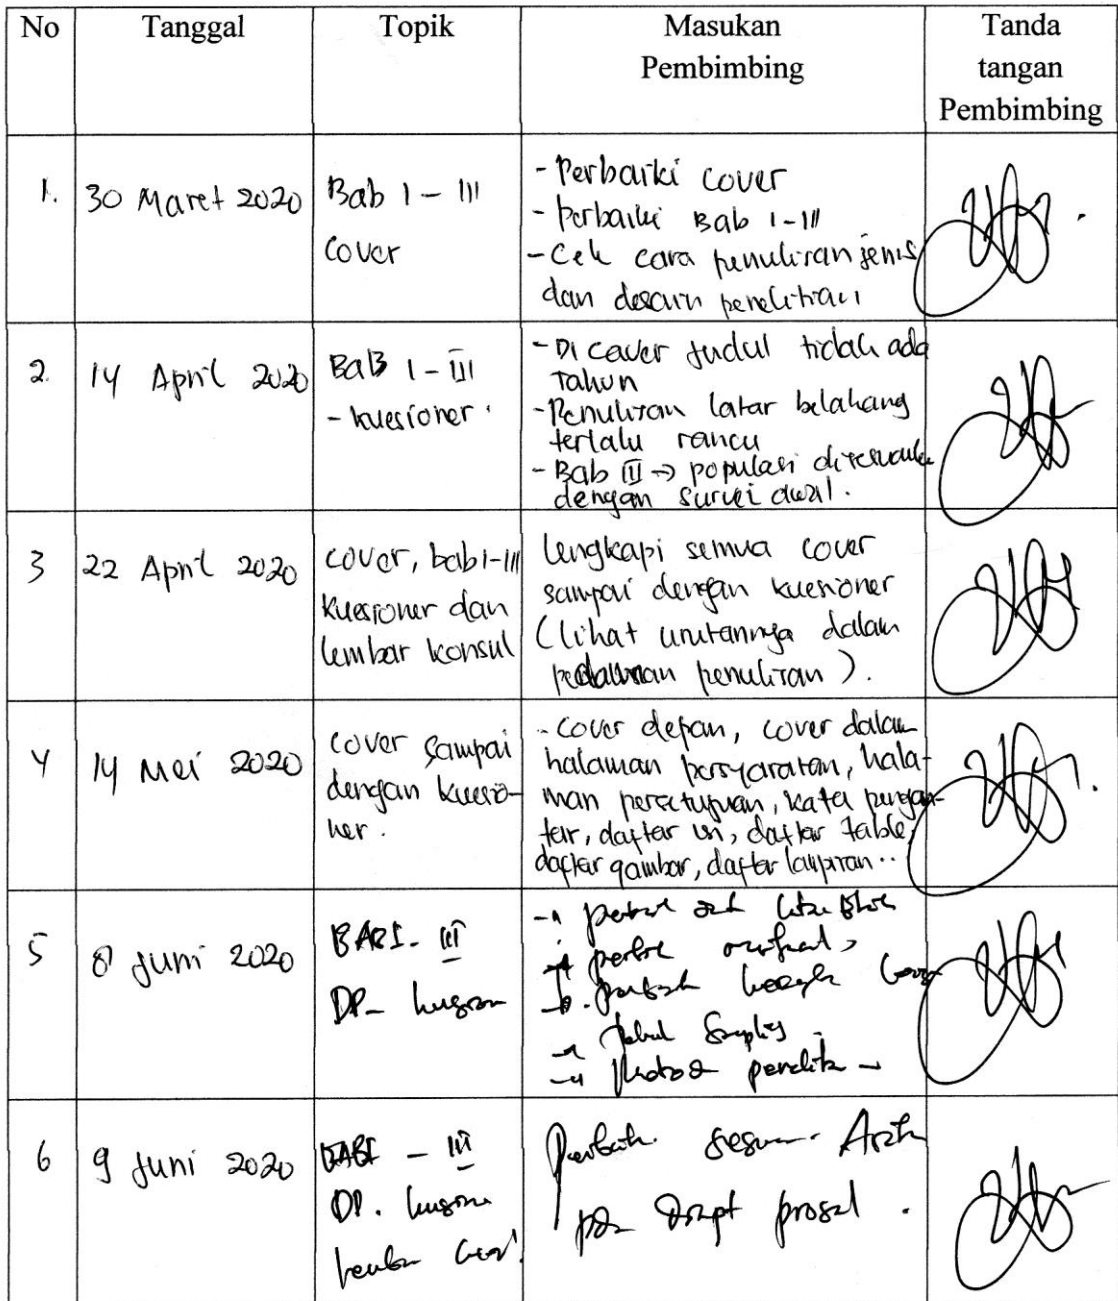 No Tanggal Topik Masukan Pembimbing Tanda tangan Pembimbing
1. 30 Maret 2020
Bab I - III
Cover
- Perbaiki cover
- perbaiki Bab I-III
- Cek cara penulisan jenis
dan desain penelitian
2. 14 April 2020
BaB I - III
- kuesioner.
- Di cover judul tidak ada
Tahun
- Penulisan latar belakang
terlalu rancu
- Bab III → populasi
dengan survei awal.
3 22 April 2020
cover, bab I-III
Kuesioner dan
lembar konsul
lengkapi semua cover
sampai dengan kuesioner
(lihat urutannya dalam
penulisan).
4 14 Mei 2020
cover sampai
dengan kuesio-
ner.
- cover depan, cover dalam
halaman persyaratan, hala-
man persetujuan, kata pengan-
tar, daftar isi, daftar table,
daftar gambar, daftar lampiran..
5 8 Juni 2020
BAB I - III
DP -
6 9 Juni 2020
BAB I - III
DP.